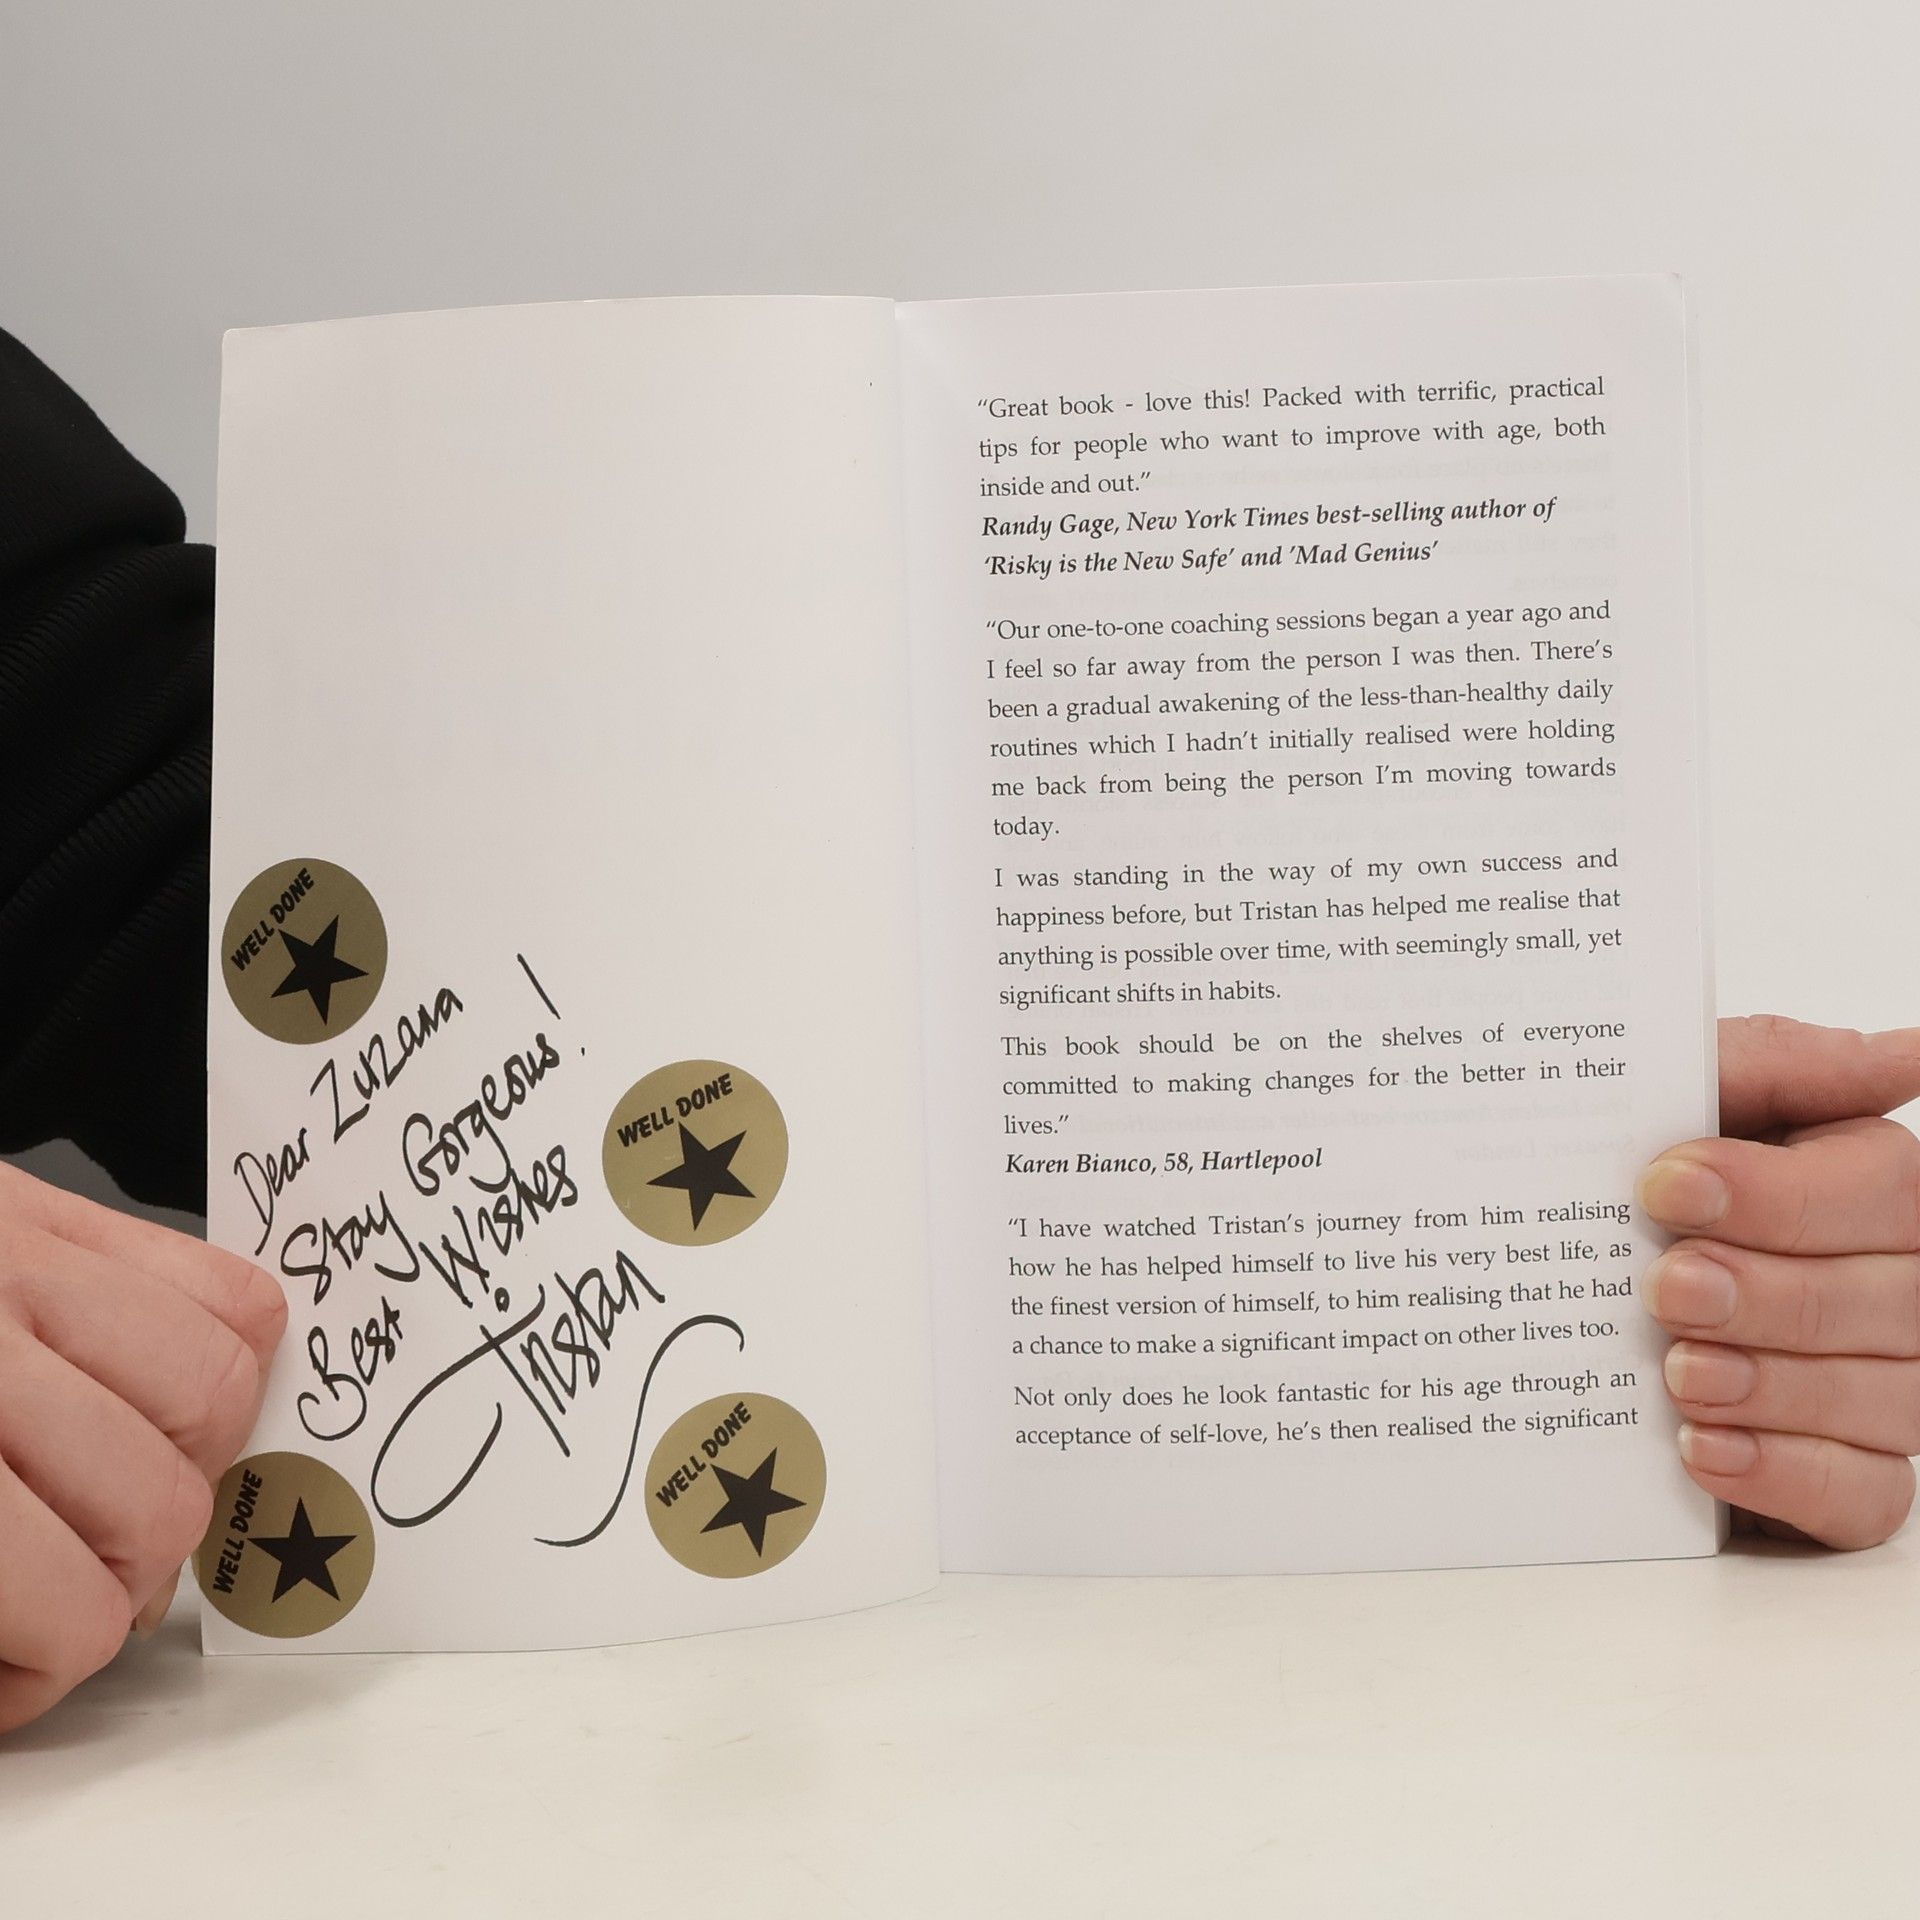 WELL DONE
Dear Zuzana
Stay Gorgeous!
Best Wishes
Tristan
WELL DONE
WELL DONE
WELL DONE
“Great book - love this! Packed with terrific, practical
tips for people who want to improve with age, both
inside and out.”
Randy Gage, New York Times best-selling author of
‘Risky is the New Safe’ and ’Mad Genius’
“Our one-to-one coaching sessions began a year ago and
I feel so far away from the person I was then. There’s
been a gradual awakening of the less-than-healthy daily
routines which I hadn’t initially realised were holding
me back from being the person I’m moving towards
today.
I was standing in the way of my own success and
happiness before, but Tristan has helped me realise that
anything is possible over time, with seemingly small, yet
significant shifts in habits.
This book should be on the shelves of everyone
committed to making changes for the better in their
lives.”
Karen Bianco, 58, Hartlepool
“I have watched Tristan’s journey from him realising
how he has helped himself to live his very best life, as
the finest version of himself, to him realising that he had
a chance to make a significant impact on other lives too.
Not only does he look fantastic for his age through an
acceptance of self-love, he’s then realised the significant